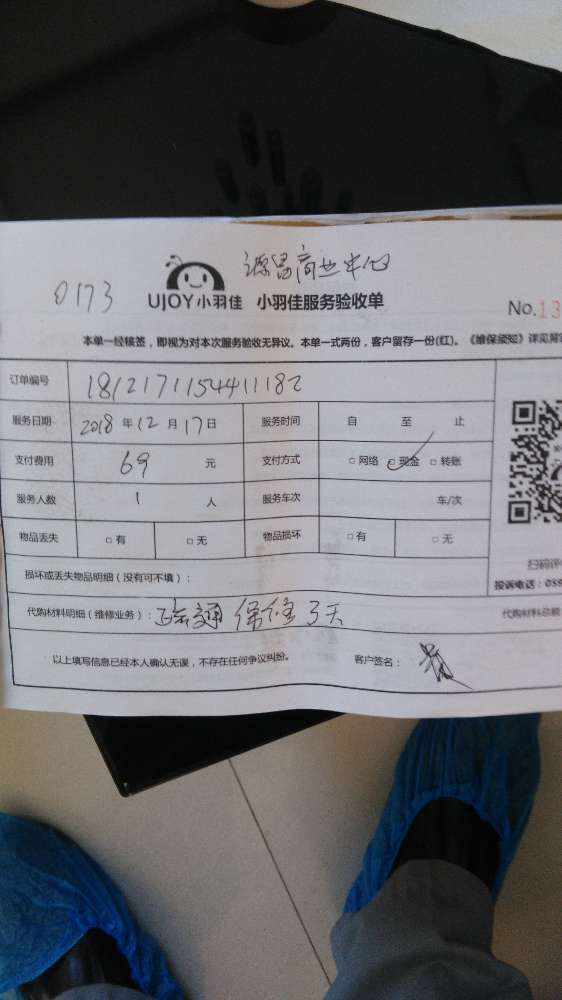 源昌商业中心
0173
UJOY小羽佳 小羽佳服务验收单
No.13
本单一经核签，即视为对本次服务验收无异议。本单一式两份，客户留存一份(红)。《维保须知》详见背
订单编号 1812171154411182
服务日期 2018 年 12 月 17 日 服务时间 自 至 止
支付费用 69 元 支付方式 □网络 □现金 □转账
服务人数 1 人 服务车次 车/次
物品丢失 □有 □无 物品损坏 □有 □无
损坏或丢失物品明细（没有可不填）：
扫码评
投诉电话：059
代购材料明细（维修业务）： 疏通 保修3天 代购材料总额
以上填写信息已经本人确认无误，不存在任何争议纠纷。 客户签名：